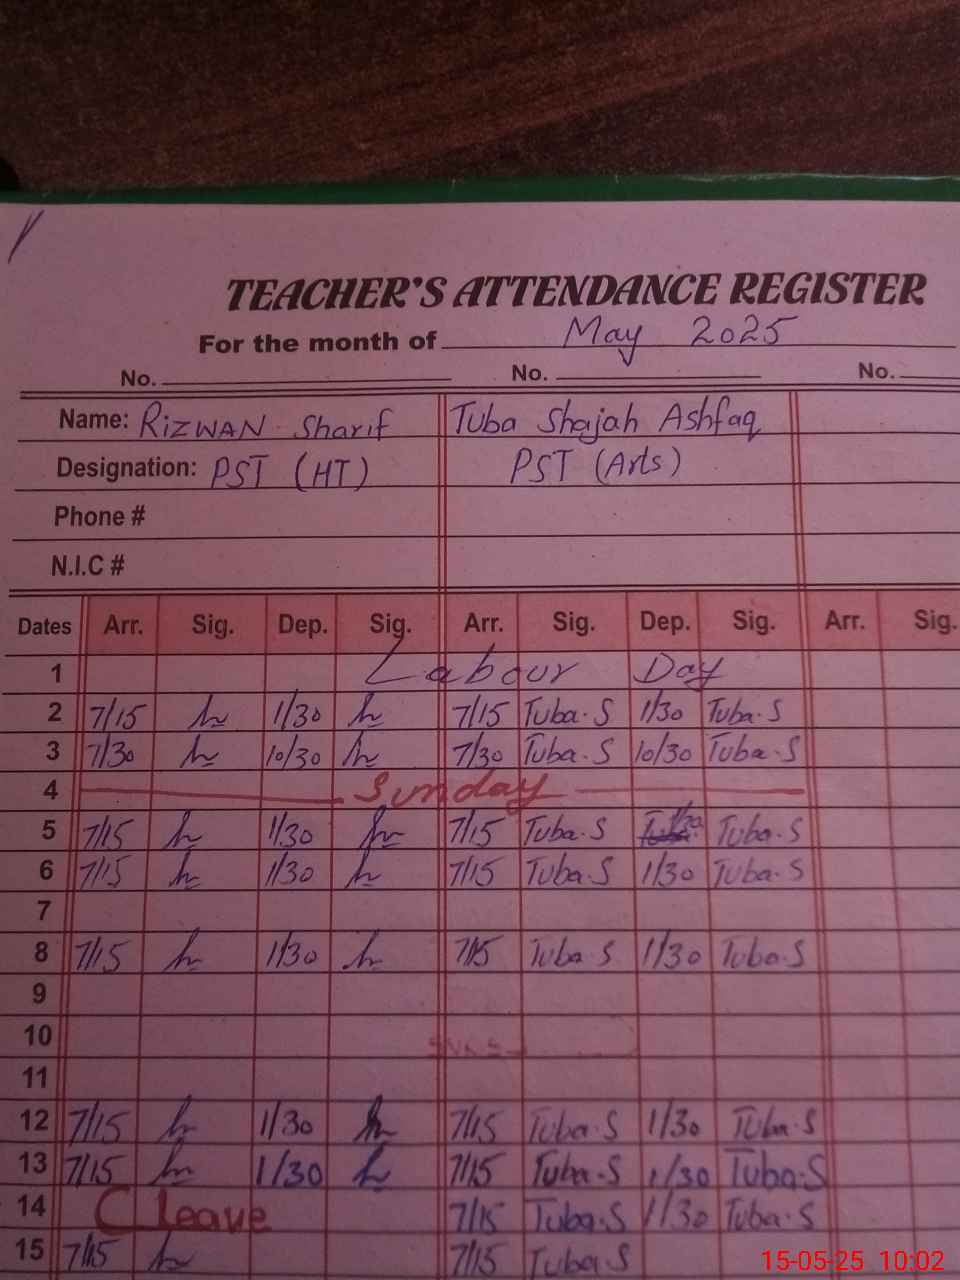 TEACHER'S ATTENDANCE REGISTER
For the month of May 2025
No. No. No.
Name: RIZWAN Sharif Tuba Shajah Ashfaq
Designation: PST (HT) PST (Arts)
Phone #
N.I.C #
Dates Arr. Sig. Dep. Sig. Arr. Sig. Dep. Sig. Arr. Sig.
1 Labour Day
2 7/15 1/30 7/15 Tuba.S 1/30 Tuba.S
3 7/30 10/30 7/30 Tuba.S 10/30 Tuba.S
4 Sunday
5 7/15 1/30 7/15 Tuba.S 1/30 Tuba.S
6 7/15 1/30 7/15 Tuba.S 1/30 Tuba.S
7
8 7/15 1/30 7/15 Tuba.S 1/30 Tuba.S
9
10
11
12 7/15 1/30 7/15 Tuba.S 1/30 Tuba.S
13 7/15 1/30 7/15 Tuba.S 1/30 Tuba.S
14 C leave 7/15 Tuba.S 1/30 Tuba.S
15 7/15 7/15 Tuba S
15-05-25 10:02